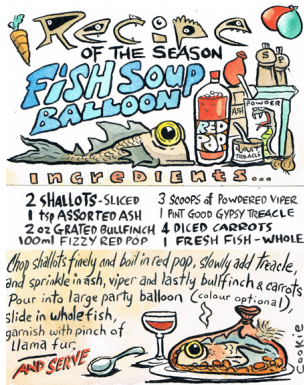 Recipe
OF THE SEASON
FISH SOUP
BALLOON
S P
POWDER
ASH
RED
POP
TREACLE
Ingredients...
2 SHALLOTS-SLICED
1 tsp ASSORTED ASH
2 oz GRATED BULLFINCH
100ml FIZZY RED POP
3 SCOOPS of POWDERED VIPER
1 PINT GOOD GYPSY TREACLE
4 DICED CARROTS
1 FRESH FISH-WHOLE
Chop shallots finely and boil in red pop, slowly add treacle,
and sprinkle in ash, viper and lastly bullfinch & carrots
Pour into large party balloon (colour optional),
slide in whole fish,
garnish with pinch of
llama fur.
AND SERVE
cookie